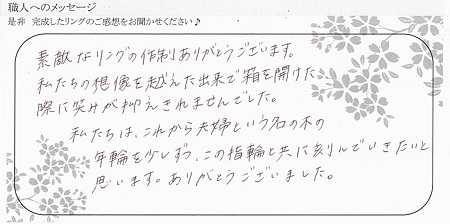 職人へのメッセージ
是非 完成したリングのご感想をお聞かせください♪
素敵なリングの作制ありがとうございます。
私たちの想像を越えた出来で箱を開けた
際に笑みが抑えきれませんでした。
私たちは、これから夫婦という名の木の
年輪を少しずつ、この指輪と共に刻んでいきたいと
思います。ありがとうございました。